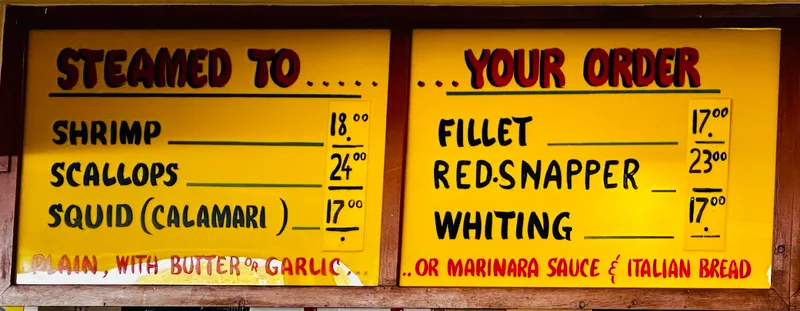 STEAMED TO.....
SHRIMP 18.00
SCALLOPS 24.00
SQUID (CALAMARI) 17.00
PLAIN, WITH BUTTER OR GARLIC...
....YOUR ORDER
FILLET 17.00
RED·SNAPPER 23.00
WHITING 17.00
..OR MARINARA SAUCE & ITALIAN BREAD